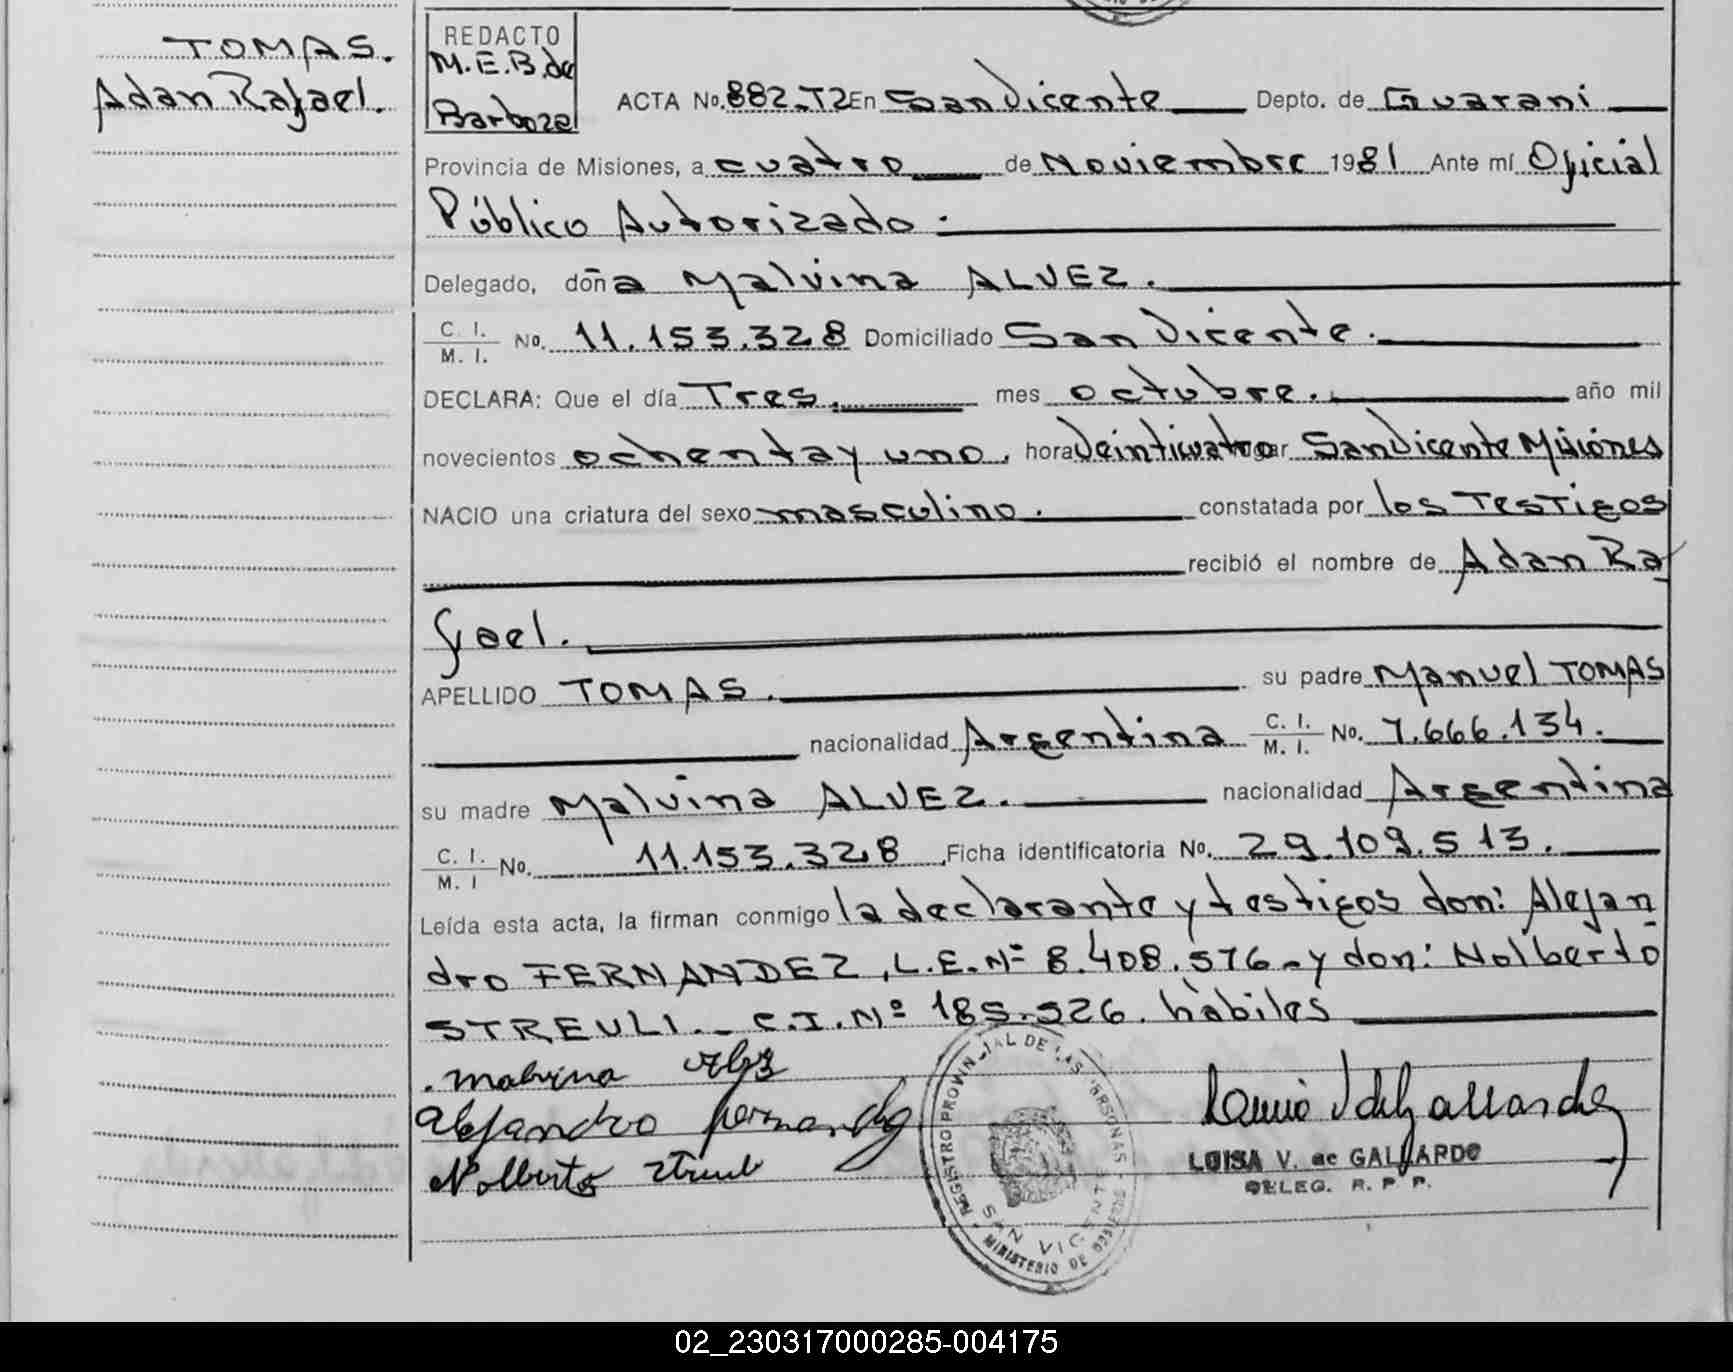 TOMAS.
Adan Rafael.
REDACTO
M.E.B. de
Barboza
ACTA No. 882-T2 En San Vicente Depto. de Guarani
Provincia de Misiones, a cuatro de Noviembre 1981 Ante mí Oficial
Público Autorizado.
Delegado, doña Malvina ALVEZ.
C. I. / M. I. No. 11.153.328 Domiciliado San Vicente.
DECLARA: Que el día Tres. mes octubre. año mil
novecientos ochenta y uno. hora Veinticuatro lugar San Vicente Misiones
NACIO una criatura del sexo masculino. constatada por los Testigos
recibió el nombre de Adan Ra
fael.
APELLIDO TOMAS. su padre Manuel TOMAS
nacionalidad Argentina C. I. / M. I. No. 7.666.134.
su madre Malvina ALVEZ. nacionalidad Argentina
C. I. / M. I No. 11.153.328 Ficha identificatoria No. 29.109.513.
Leída esta acta, la firman conmigo la declarante y testigos don: Alejan
dro FERNANDEZ, L.E.Nº 8.408.576.- y don: Nolberto
STREULI.- C.I.Nº 185.526. hábiles
Malvina Alvez
Alejandro Fernandez
Nolberto Streuli
REGISTRO PROVINCIAL DE LAS PERSONAS
SAN VICENTE
MINISTERIO DE GOBIERNO
LUISA V. de GALLARDO
DELEG. R. P. P.
02_230317000285-004175